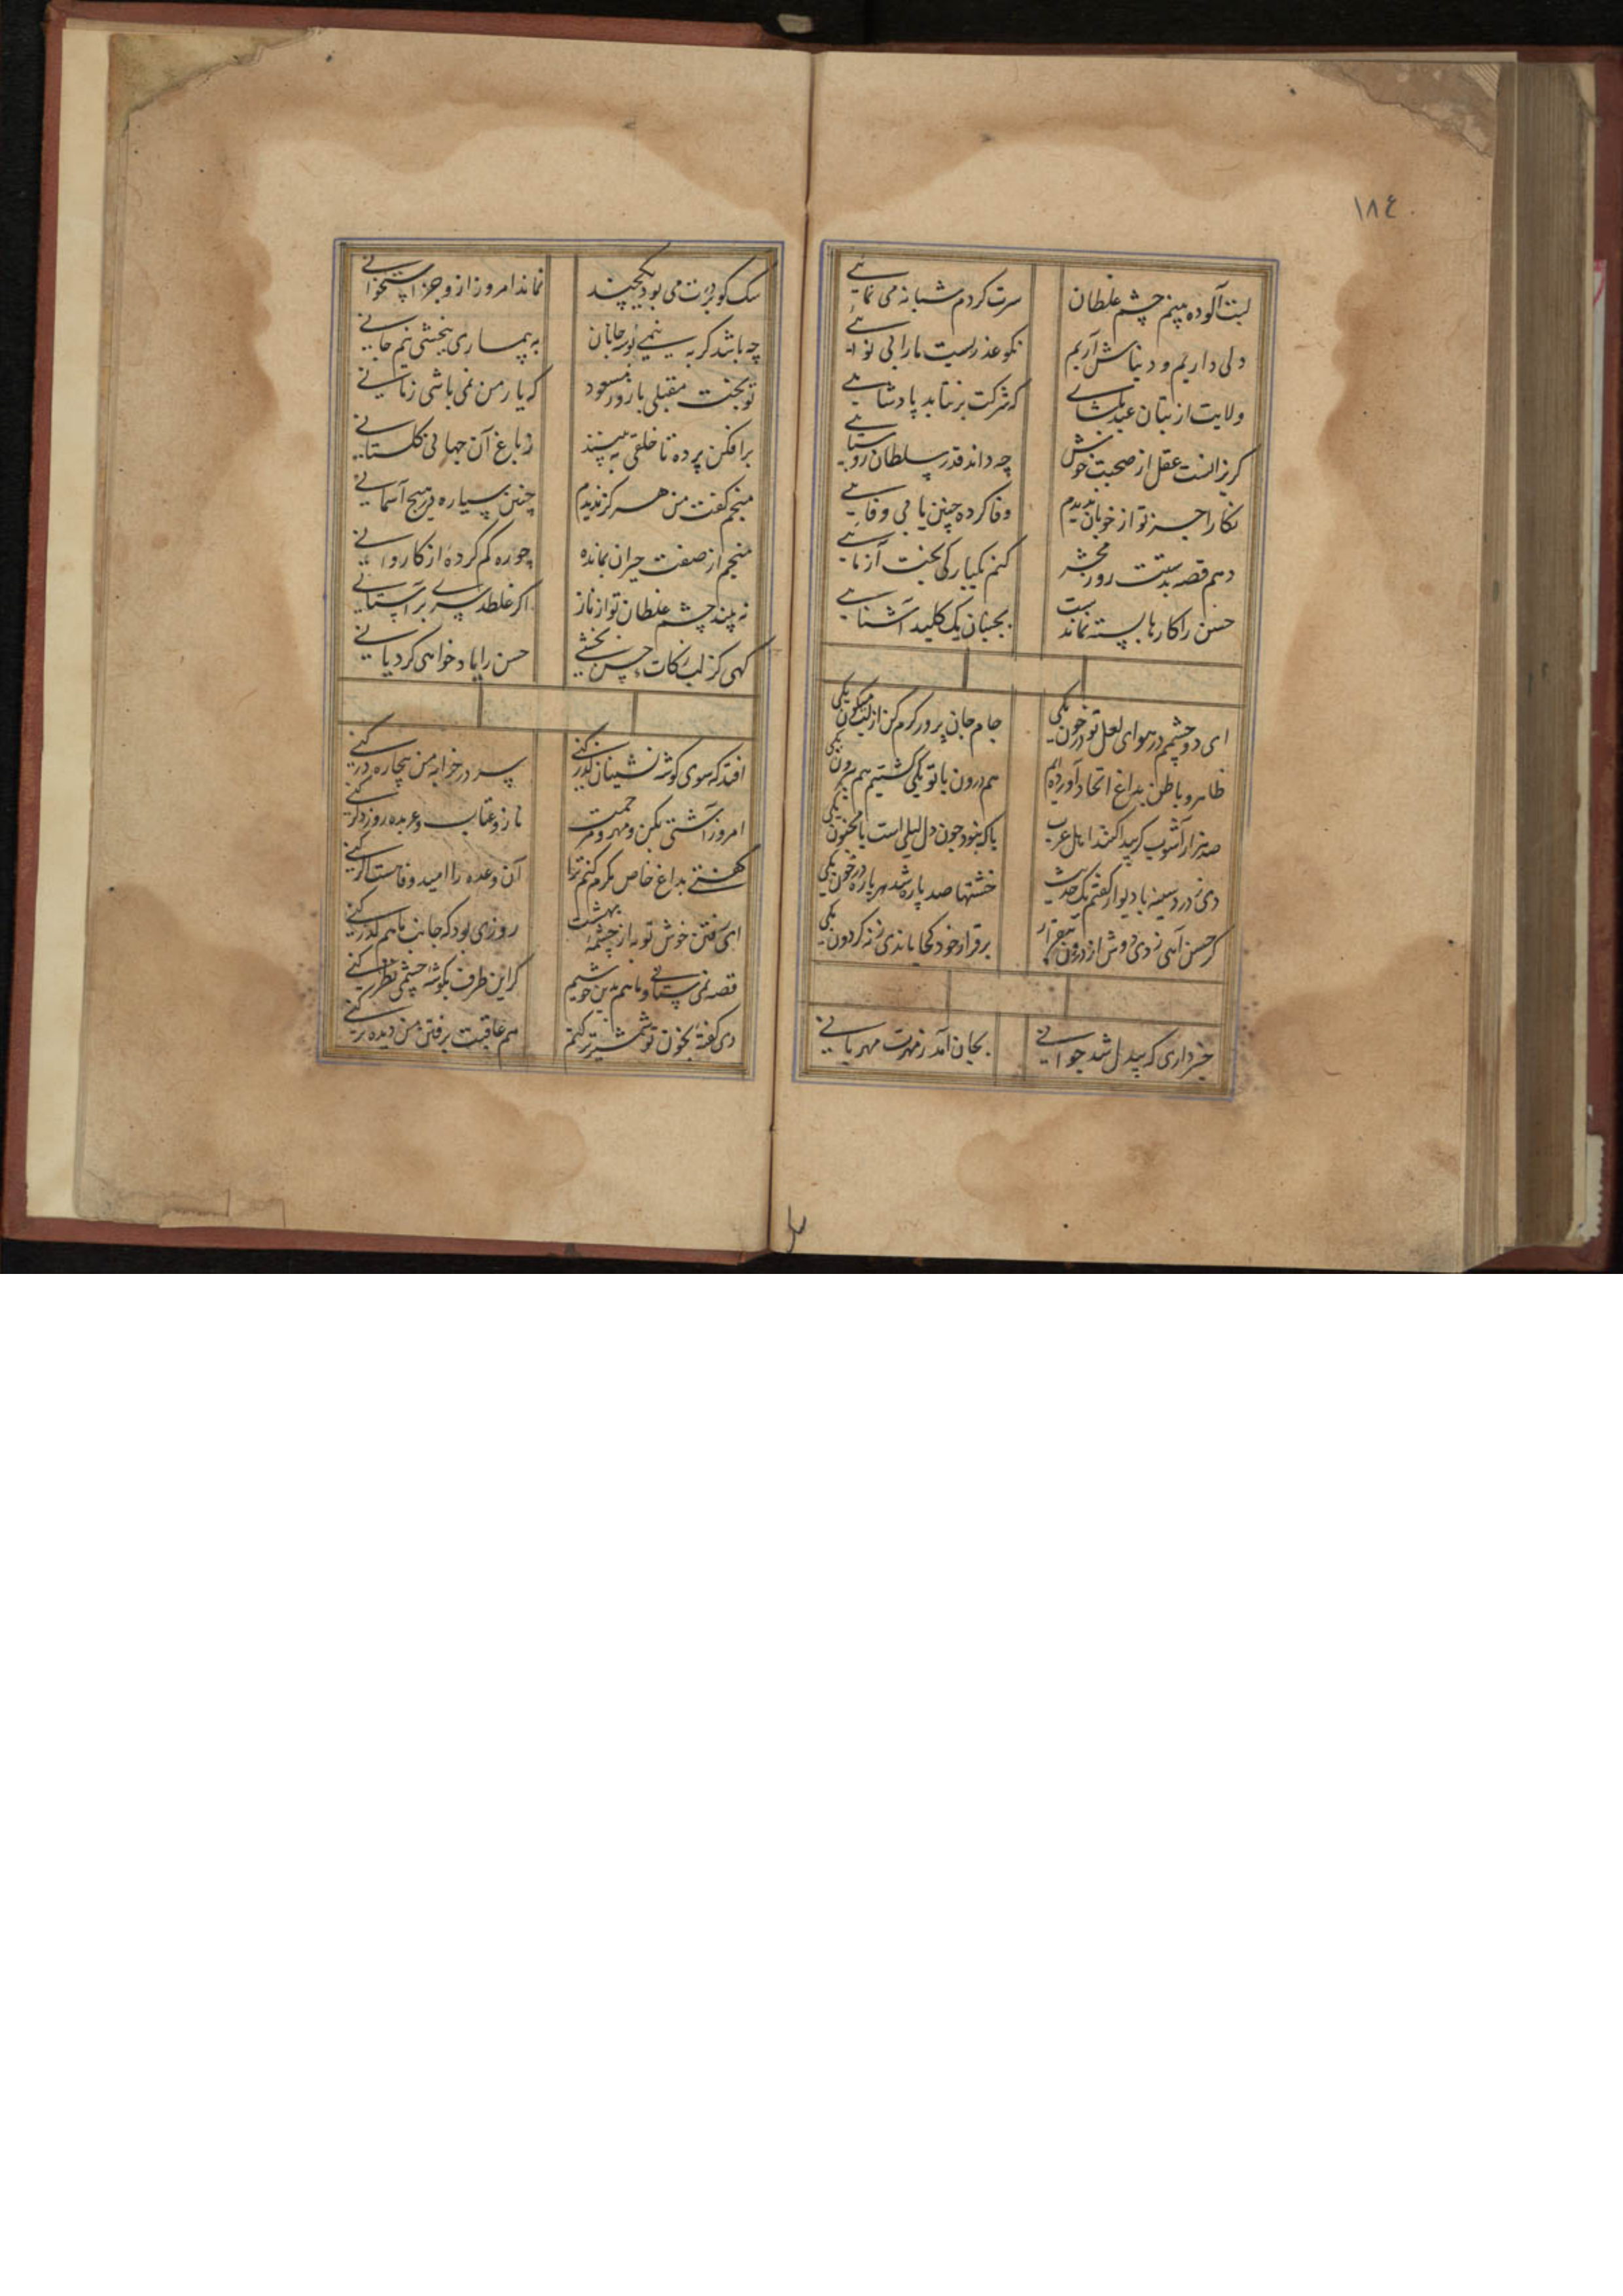 ١٨٤
لبت آلوده بینم چشم غلطان سرت کردم شبانه می نمایی
دلی داریم و دینا پیش آریم نکو عذریست مارا بی نوایی
ولایت از بتان عید بکشای که شرکت برنتابد پادشاهی
کریزانست عقل از صحبت خویش چه داند قدر سلطان روستایی
نکارا جز تو از خوبان ندیدم وفا کرده چنین یا بی وفایی
دهم قصه بدستت روز محشر کنم یکبارکی بخت آزمایی
حسن را کارها بسته نماندست بجنبان یک کلید آشنایی
ای دو چشمم در هوای لعل تو در خون یکی جام جان پرور کرم کن از لب میکون یکی
ظاهر و باطن بداغ اتحاد آورده ایم هم درون با تو یکی کشتیم هم بیرون یکی
صد هزار آشوب کر پیدا کنند اهل عرب باک نبود چون دل لیلی است با مجنون یکی
دی ز درد سینه با دیوار کفتم یک حدیث خشتها صد پاره شد هر پاره در خون یکی
کر حسن آهی زدی دوش از درون بیقرار برقرار خود کجا ماندی ز نه کردون یکی
خبر داری که بیدل شد جوانی بجان آمد ز مهرت مهربانی
سک کو بر درت می بود یکچند نماند امروز ازو جز استخوانی
چه باشد کر به نیمی بوسه جانان به بیماری ببخشی نیم جانی
تو بخت مقبلی با روز مسعود که یار من نمی باشی زمانی
برافکن پرده تا خلقی ببینند ز باغ آن جهانی کلستانی
منجم کفت من هرکز ندیدم چنین سیاره در هیچ آسمانی
منجم از صفت حیران بمانده چو ره کم کرده از کاروانی
نه بیند چشم غلطان تو از ناز اکر غلطد سری بر آستانی
کهی کز لب زکات حسن بخشی حسن را یاد خواهی کرد یانی
افتد که سوی کوشه نشینان کذر کنی سر در خرابه من بیچاره در کنی
امروز آشتی بکن و مهر و مرحمت ناز و عتاب و عربده روز دکر کنی
کفتی بداغ خاص مکرم کنم ترا آن وعده را امید وفاست اکر کنی
ای رفتن خوش تو به از چشمه بهشت روزی بود که جانب ما هم کذر کنی
قصه نمی ستانی و ما هم بدین خوشیم کر این طرف بکوشه چشمی نظر کنی
دی کفته بخون تو شمشیر تر کنم هم عاقبت برفتن من دیده تر کنی